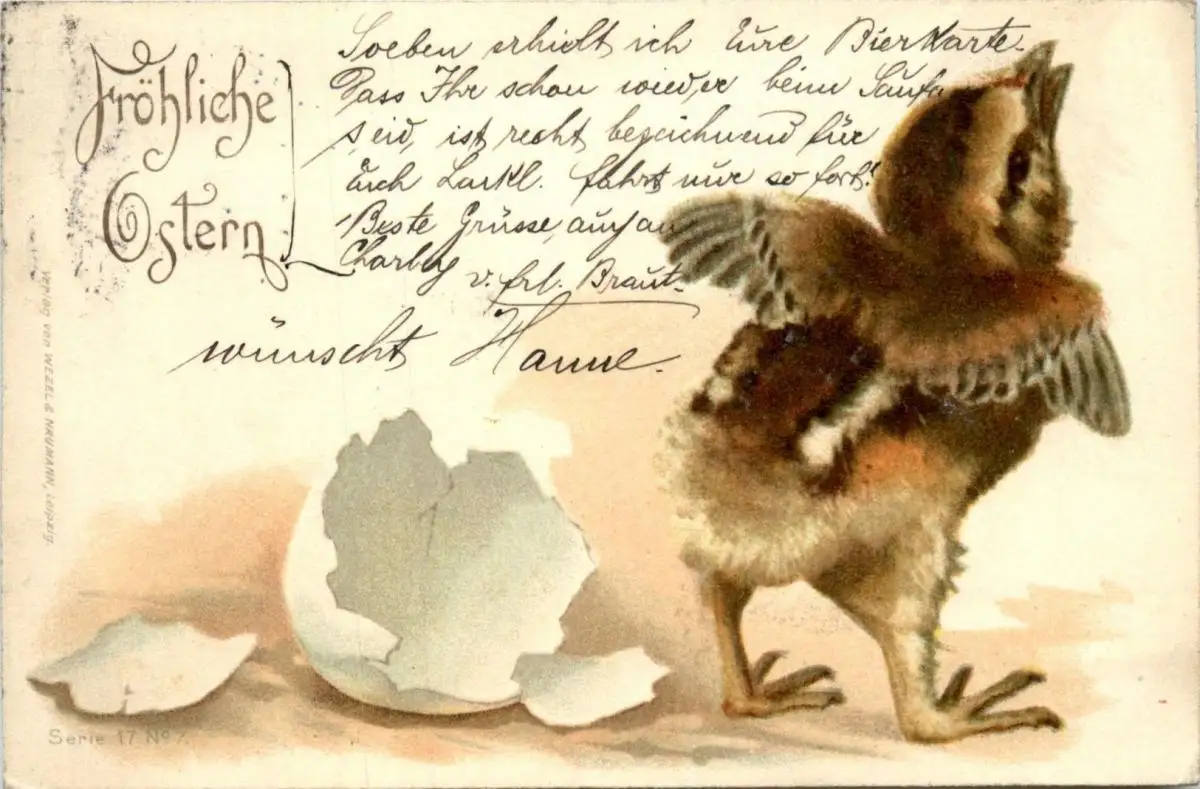 Fröhliche
Ostern
Soeben erhielt ich Eure Bierkarte.
Dass Ihr schon wieder beim Saufen
seid, ist recht bezeichnend für
Euch fahrt nur so fort!
Beste Grüsse, auch an
v. Frl. Braut
wünscht Hanne.
Verlag von WEZEL & NAUMANN, Leipzig.
Serie 17 No